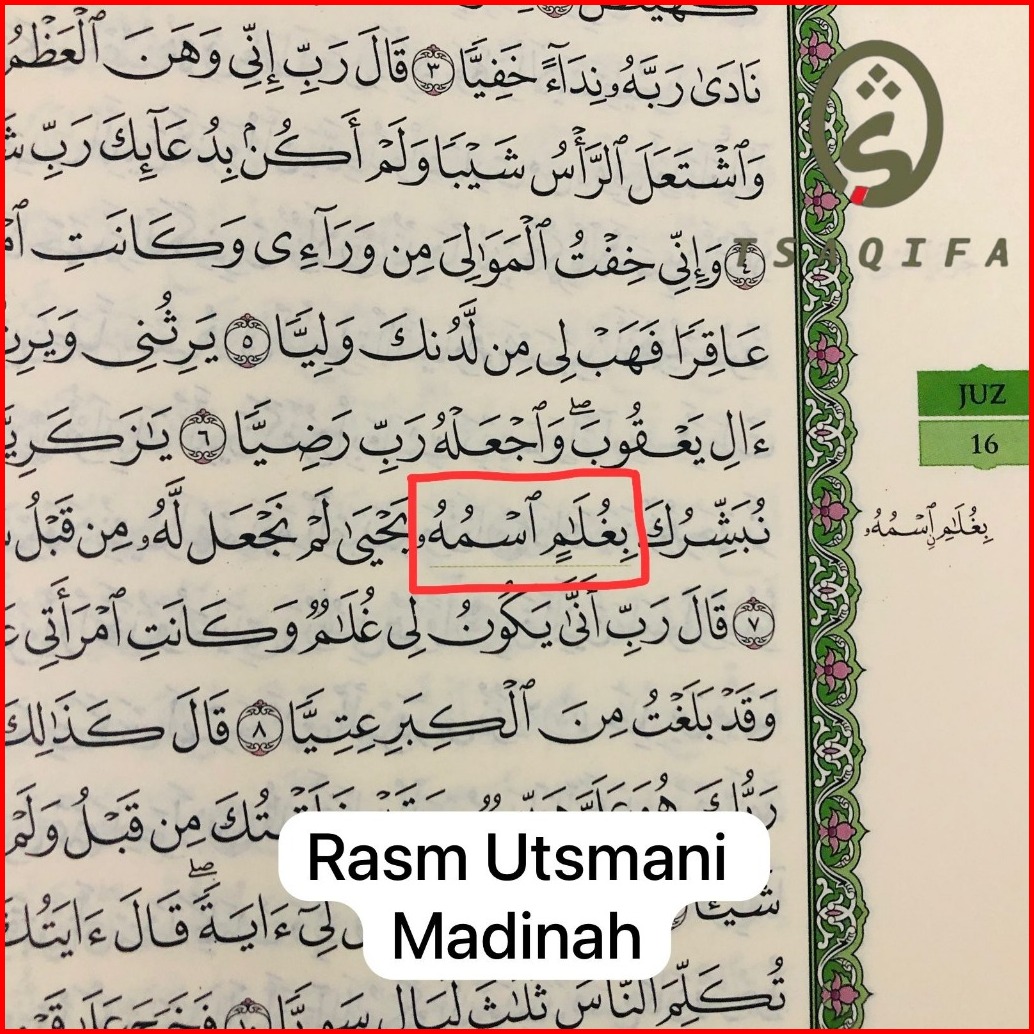 نَادَىٰ رَبَّهُۥ نِدَآءً خَفِيًّا ٣ قَالَ رَبِّ إِنِّى وَهَنَ ٱلْعَظْمُ
وَٱشْتَعَلَ ٱلرَّأْسُ شَيْبًا وَلَمْ أَكُنۢ بِدُعَآئِكَ رَبِّ
٤ وَإِنِّى خِفْتُ ٱلْمَوَٰلِىَ مِن وَرَآءِى وَكَانَتِ
عَاقِرًا فَهَبْ لِى مِن لَّدُنكَ وَلِيًّا ٥ يَرِثُنِى
ءَالِ يَعْقُوبَ ۖ وَٱجْعَلْهُ رَبِّ رَضِيًّا ٦
نُبَشِّرُكَ بِغُلَٰمٍ ٱسْمُهُۥ يَحْيَىٰ لَمْ نَجْعَل لَّهُۥ مِن قَبْلُ
٧ قَالَ رَبِّ أَنَّىٰ يَكُونُ لِى غُلَٰمٌ وَكَانَتِ ٱمْرَأَتِى
وَقَدْ بَلَغْتُ مِنَ ٱلْكِبَرِ عِتِيًّا ٨ قَالَ كَذَٰلِكَ
مِن قَبْلُ وَلَمْ
لِّىٓ ءَايَةً ۚ قَالَ ءَايَتُكَ
تُكَلِّمَ ٱلنَّاسَ ثَلَٰثَ لَيَالٍ سَوِيًّا
TSAQIFA
JUZ
16
بِغُلَامٍ نِ ٱسْمُهُۥ
Rasm Utsmani
Madinah